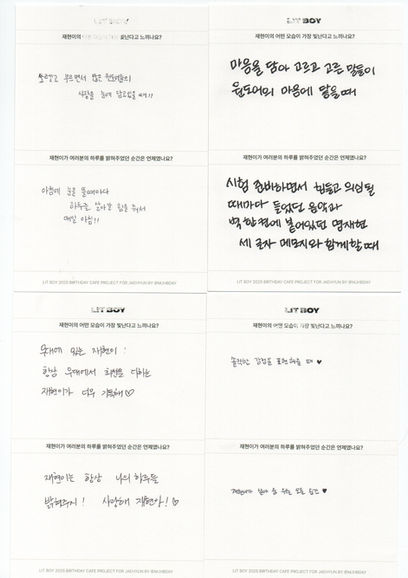 LIT BOY
재현이의 어떤 모습이 가장 빛난다고 느끼나요?
부르면서 많은 원도어들의
사랑을 눈에 담고있을 때!!
재현이가 여러분의 하루를 밝혀주었던 순간은 언제였나요?
아침에 눈을 뜰때마다
하루를 살아갈 힘을 줘서
매일 아침!!
LIT BOY 2025 BIRTHDAY CAFE PROJECT FOR JAEHYUN BY @MJHBDAY
LIT BOY
재현이의 어떤 모습이 가장 빛난다고 느끼나요?
마음을 담아 고르고 고른 말들이
원도어의 마음에 닿을 때
재현이가 여러분의 하루를 밝혀주었던 순간은 언제였나요?
시험 준비하면서 힘들고 의심될
때마다 들었던 음악과
벽 한켠에 붙어있던 명재현
세 글자 메모지와 함께할 때
LIT BOY 2025 BIRTHDAY CAFE PROJECT FOR JAEHYUN BY @MJHBDAY
LIT BOY
재현이의 어떤 모습이 가장 빛난다고 느끼나요?
무대에 있는 재현이!
항상 무대에서 최선을 다하는
재현이가 너무 기특해♡
재현이가 여러분의 하루를 밝혀주었던 순간은 언제였나요?
재현이는 항상 나의 하루를
밝혀주지! 사랑해 재현아!♡
LIT BOY 2025 BIRTHDAY CAFE PROJECT FOR JAEHYUN BY @MJHBDAY
LIT BOY
재현이의 어떤 모습이 가장 빛난다고 느끼나요?
솔직한 감정을 표현해줄 때 ♥
재현이가 여러분의 하루를 밝혀주었던 순간은 언제였나요?
재현이가 모든 순간 ♥
LIT BOY 2025 BIRTHDAY CAFE PROJECT FOR JAEHYUN BY @MJHBDAY